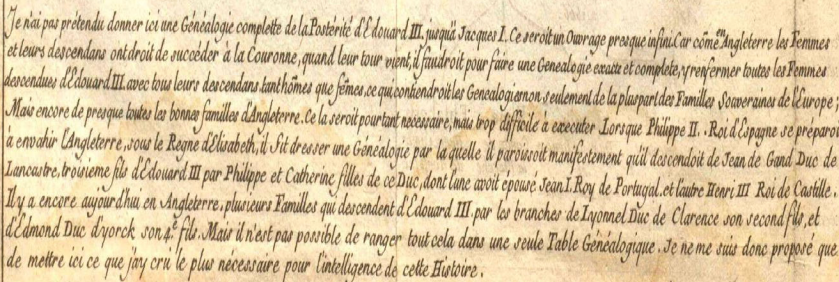 Je n'ai pas prétendu donner ici une Généalogie complette de la Postérité d'Edouard III. jusqu'à Jacques I. Ce seroit un Ouvrage presque infini. Car côme en Angleterre les Femmes
et leurs descendans ont droit de succéder à la Couronne, quand leur tour vient, il faudroit pour faire une Genealogie exacte et complete, y renfermer toutes les Femmes
descendues d'Edouard III. avec tous leurs descendans tant hômes que fêmes, ce qui contiendroit les Genealogies non seulement de la pluspart des Familles Souveraines de l'Europe;
Mais encore de presque toutes les bonnes familles d'Angleterre. Ce la seroit pourtant necessaire, mais trop difficile a executer Lorsque Philippe II. Roi d'Espagne se préparoit
à envahir l'Angleterre, sous le Regne d'Elisabeth, il fit dresser une Généalogie par la quelle il paroissoit manifestement qu'il descendoit de Jean de Gand Duc de
Lancastre, troisieme fils d'Edouard III par Philippe et Catherine filles de ce Duc, dont l'une avoit épousé Jean I. Roy de Portugal. et l'autre Henri III Roi de Castille.
Il y a encore aujourd'hui en Angleterre, plusieurs Familles qui descendent d'Edouard III. par les branches de Lyonnel Duc de Clarence son second fils, et
d'Edmond Duc d'yorck son 4.e fils. Mais il n'est pas possible de ranger tout cela dans une seule Table Généalogique. Je ne me suis donc proposé que
de mettre ici ce que j'ay cru le plus nécessaire pour l'intelligence de cette Histoire.